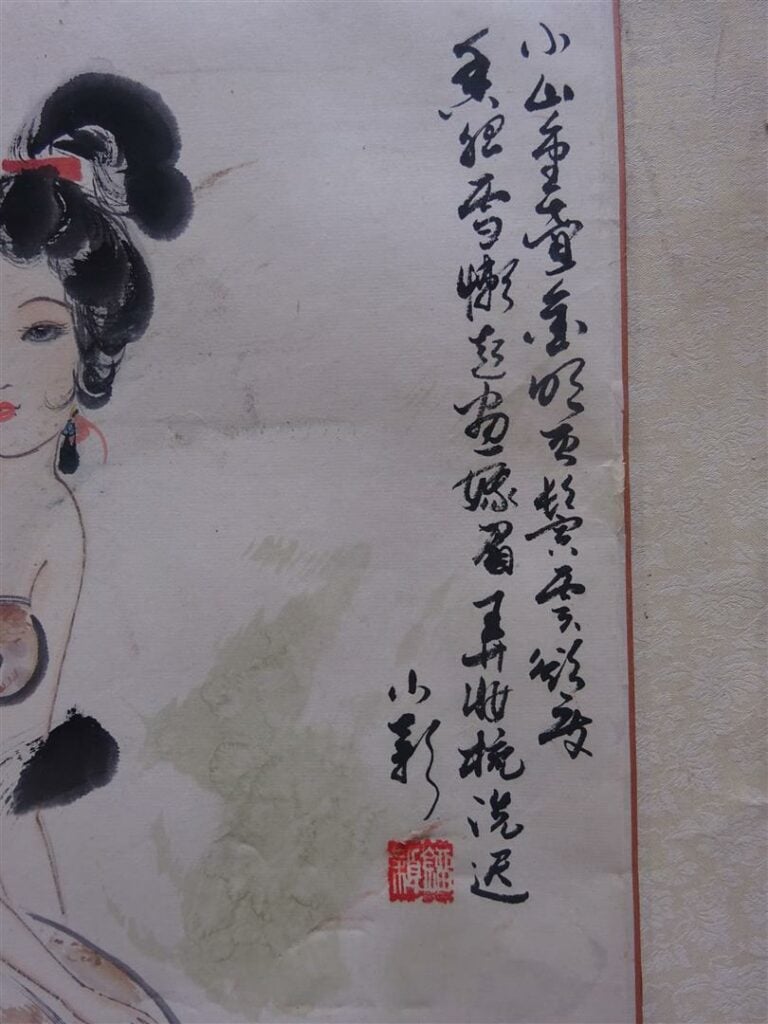 小山重叠金明灭鬓雲欲度
香腮雪懒起畫娥眉弄妆梳洗迟
小